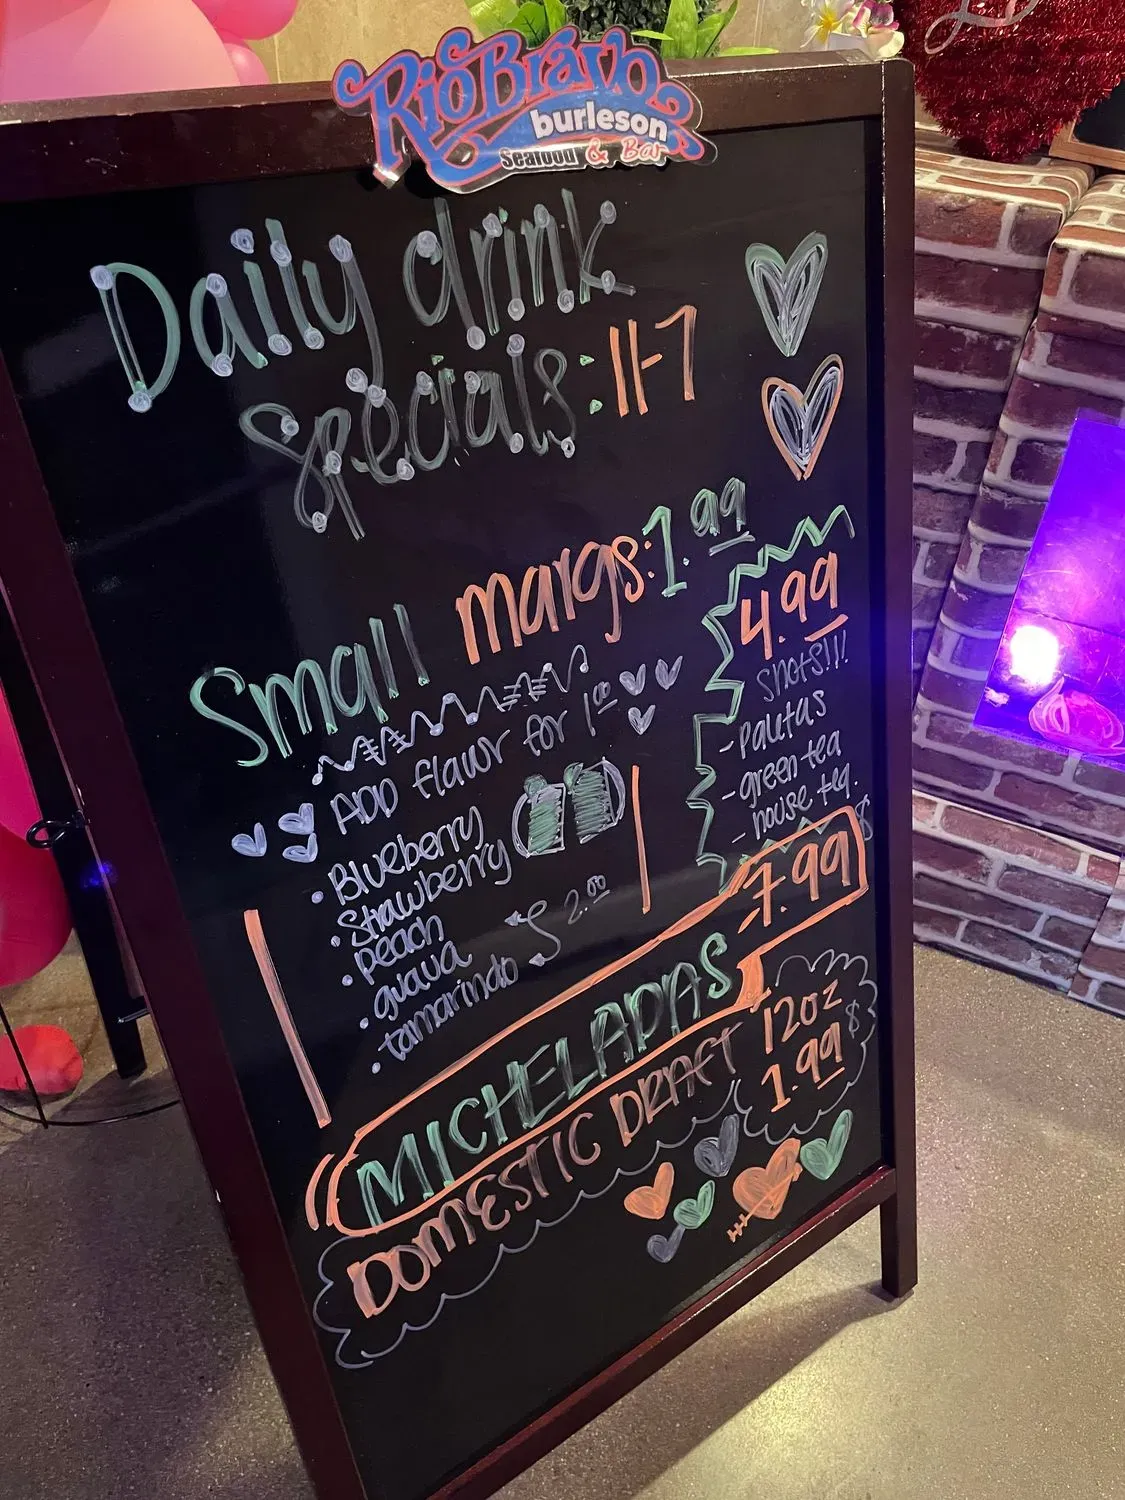 Rio Bravo
burleson
Seafood & Bar
Daily drink
specials: 11-7
Small margs: 1.99
ADD flavor for 1.00
• Blueberry
• Strawberry
• peach
• guava
• tamarindo 2.00
4.99
shots!!!
- paletas
- green tea
- house teq.
MICHELADAS 7.99
DOMESTIC DRAFT 12oz
$1.99